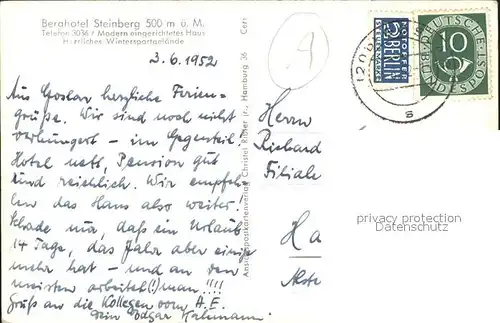 Berghotel Steinberg 500 m ü. M.
Telefon 3036 / Modern eingerichtetes Haus
Herrliches Wintersportgelände
3.6.1952
Aus Goslar herzliche Ferien-
grüße. Wir sind noch nicht
verhungert - im Gegenteil!
Hotel nett, Pension gut
und reichlich. Wir empfeh-
len das Haus also weiter!
Schade nur, daß ein Urlaub
14 Tage, das Jahr aber einige
mehr hat - und an den
meisten arbeitet(!) man!!!!
Gruß an die Kollegen vom A.E.
Dein Edgar
Ansichtspostkartenverlag Christel Ritter jr., Hamburg 36
Herrn
Richard
Filiale
Ha
NOTOPFER
2 BERLIN
STEUERMARKE
DEUTSCHE
BUNDESPOST
10
privacy protection
Datenschutz